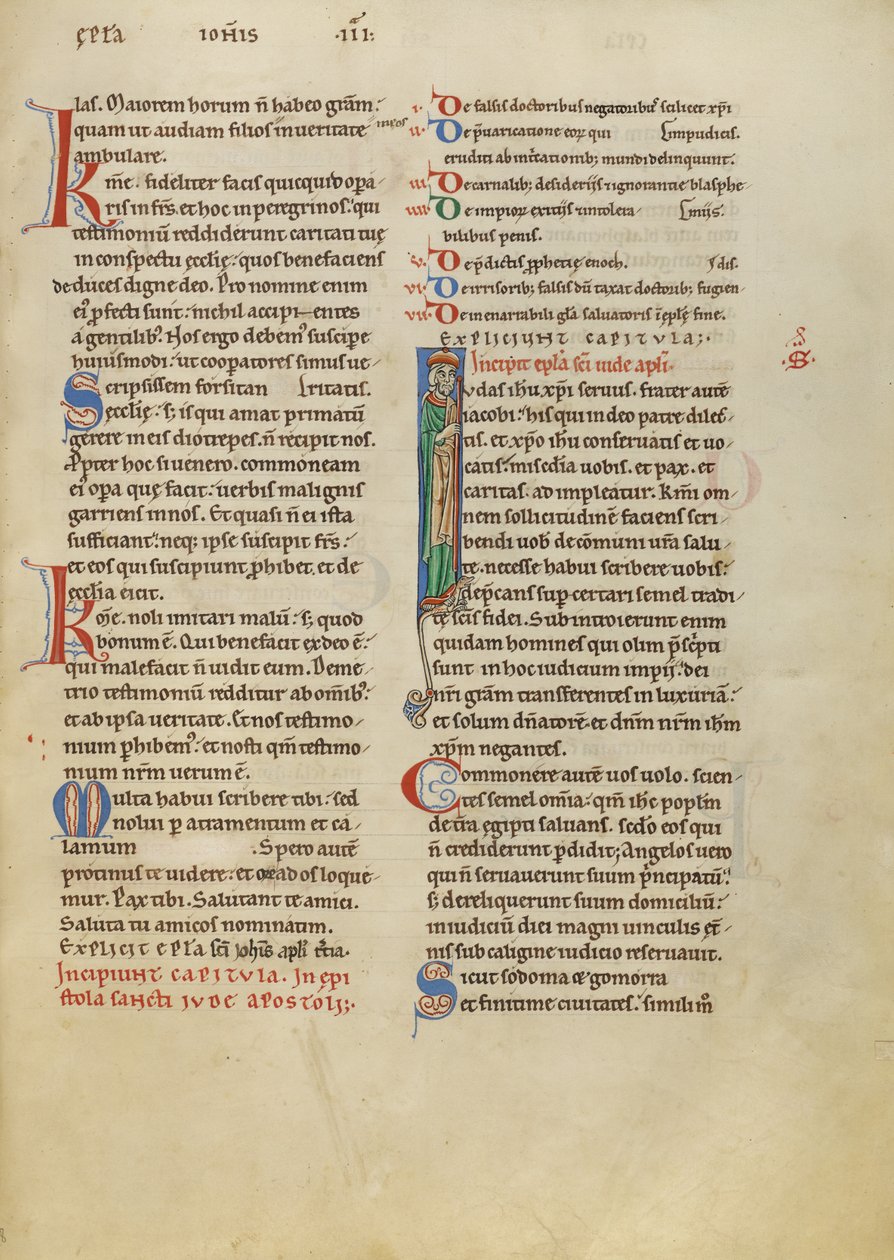 ęp̅ła ioħis .iii:
las. Maiorem horum n̅ habeo gr̅am:
quam ut audiam filios meos in ueritate
ambulare.
Kme̅. fideliter facis quicquid op̲a-
ris in fr̅s. et hoc in peregrinos: qui
testimoniu̅ reddiderunt caritati tuę
in conspectu ęccłię: quos benefaciens
deduces digne deo. Pro nomine enim
ei᷒ p̲fecti sunt: nichil accipi-entes
a gentilib᷒. Nos ergo debem᷒ suscipe
huiusmodi: ut coop̲atores simus ue-
ritatis.
Scripsissem forsitan
ęcclię: s; is qui amat primatu̅
gerere in eis diotrepes. n̅ recipit nos.
Propter hoc si uenero. commoneam
ei᷒ op̲a quę facit: uerbis malignis
garriens in nos. Et quasi n̅ ei ista
sufficiant: neq; ipse suscipit fr̅s:
et eos qui suscipiunt p̲hibet. et de
ęccłia eicit.
Kme̅. noli imitari malu̅: s; quod
bonum e̅. Qui benefacit ex deo e̅:
qui malefacit n̅ uidit eum. Deme-
trio testimoniu̅ redditur ab om̅ib᷒:
et ab ipsa ueritate. Et nos testimo-
nium p̲hibem᷒: et nosti qm̅ testimo-
nium nr̅m uerum e̅.
Multa habui scribere tibi: sed
nolui p̲ atramentum et ca-
lamum . Spero aute̅
protinus te uidere: et os ad os loque-
mur. Pax tibi. Salutant te amici.
Saluta tu amicos nominatim.
Explicit ep̅ła sc̅i ioh̅is apłi t̅cia.
Incipiunt capitula. In epi
stola sancti iude apostoli;.
i. De falsis doctoribus negatorib᷒ scilicet xp̅i
ii. De p̅uaricatione eor̅ qui impudicis.
eruditi ab inc̅tationib; mundi delinquunt.
iii. De carnalib; desideriis 7 ignorantie blasphe-
miis.
iiii. De impior̅ exitiis 7 intolera-
bilibus penis.
v. De p̅dictis p̲phetię enoch.
vi. De irrisorib; falsis du̅ taxat doctorib; fugien-
dis.
vii. De inenarrabili gła saluatoris i̅ ep̅lę fine.
Expliciunt capitula;.
Incipit ep̅ła sc̅i iude apłi.
S.
Iudas ih̅u xp̅i seruus. frater aute̅
iacobi: his qui in deo patre dilec-
tis. et xp̅o ih̅u conseruatis et uo-
catis: misc̅dia uobis. et pax. et
caritas. adimpleatur. Km̅i om-
nem sollicitudine̅ faciens scri-
bendi uob̅ de co̅muni ur̅a salu-
te. necesse habui scribere uobis:
dep̅cans sup̲certari semel tradi-
te sc̅is fidei. Subintroierunt enim
quidam homines qui olim p̅sc̅pti
sunt in hoc iudicium impii: dei
nr̅i gr̅am transferentes in luxuria̅:
et solum dn̅atore̅ et dn̅m nr̅m ih̅m
xp̅m negantes.
Commonere aute̅ uos uolo. scien-
tes semel om̅ia: qm̅ ih̅c popłm
de t̅ra egipti saluans. sedo̅ eos qui
n̅ crediderunt p̲didit; Angelos uero
qui n̅ seruauerunt suum p̅ncipatu̅:
s; dereliquerunt suum domiciliu̅:
in iudiciu̅ diei magni uinculis et̅-
nis sub caligine iudicio reseruauit.
Sicut sodoma & gomorra
et finitime ciuitates: simili m̊